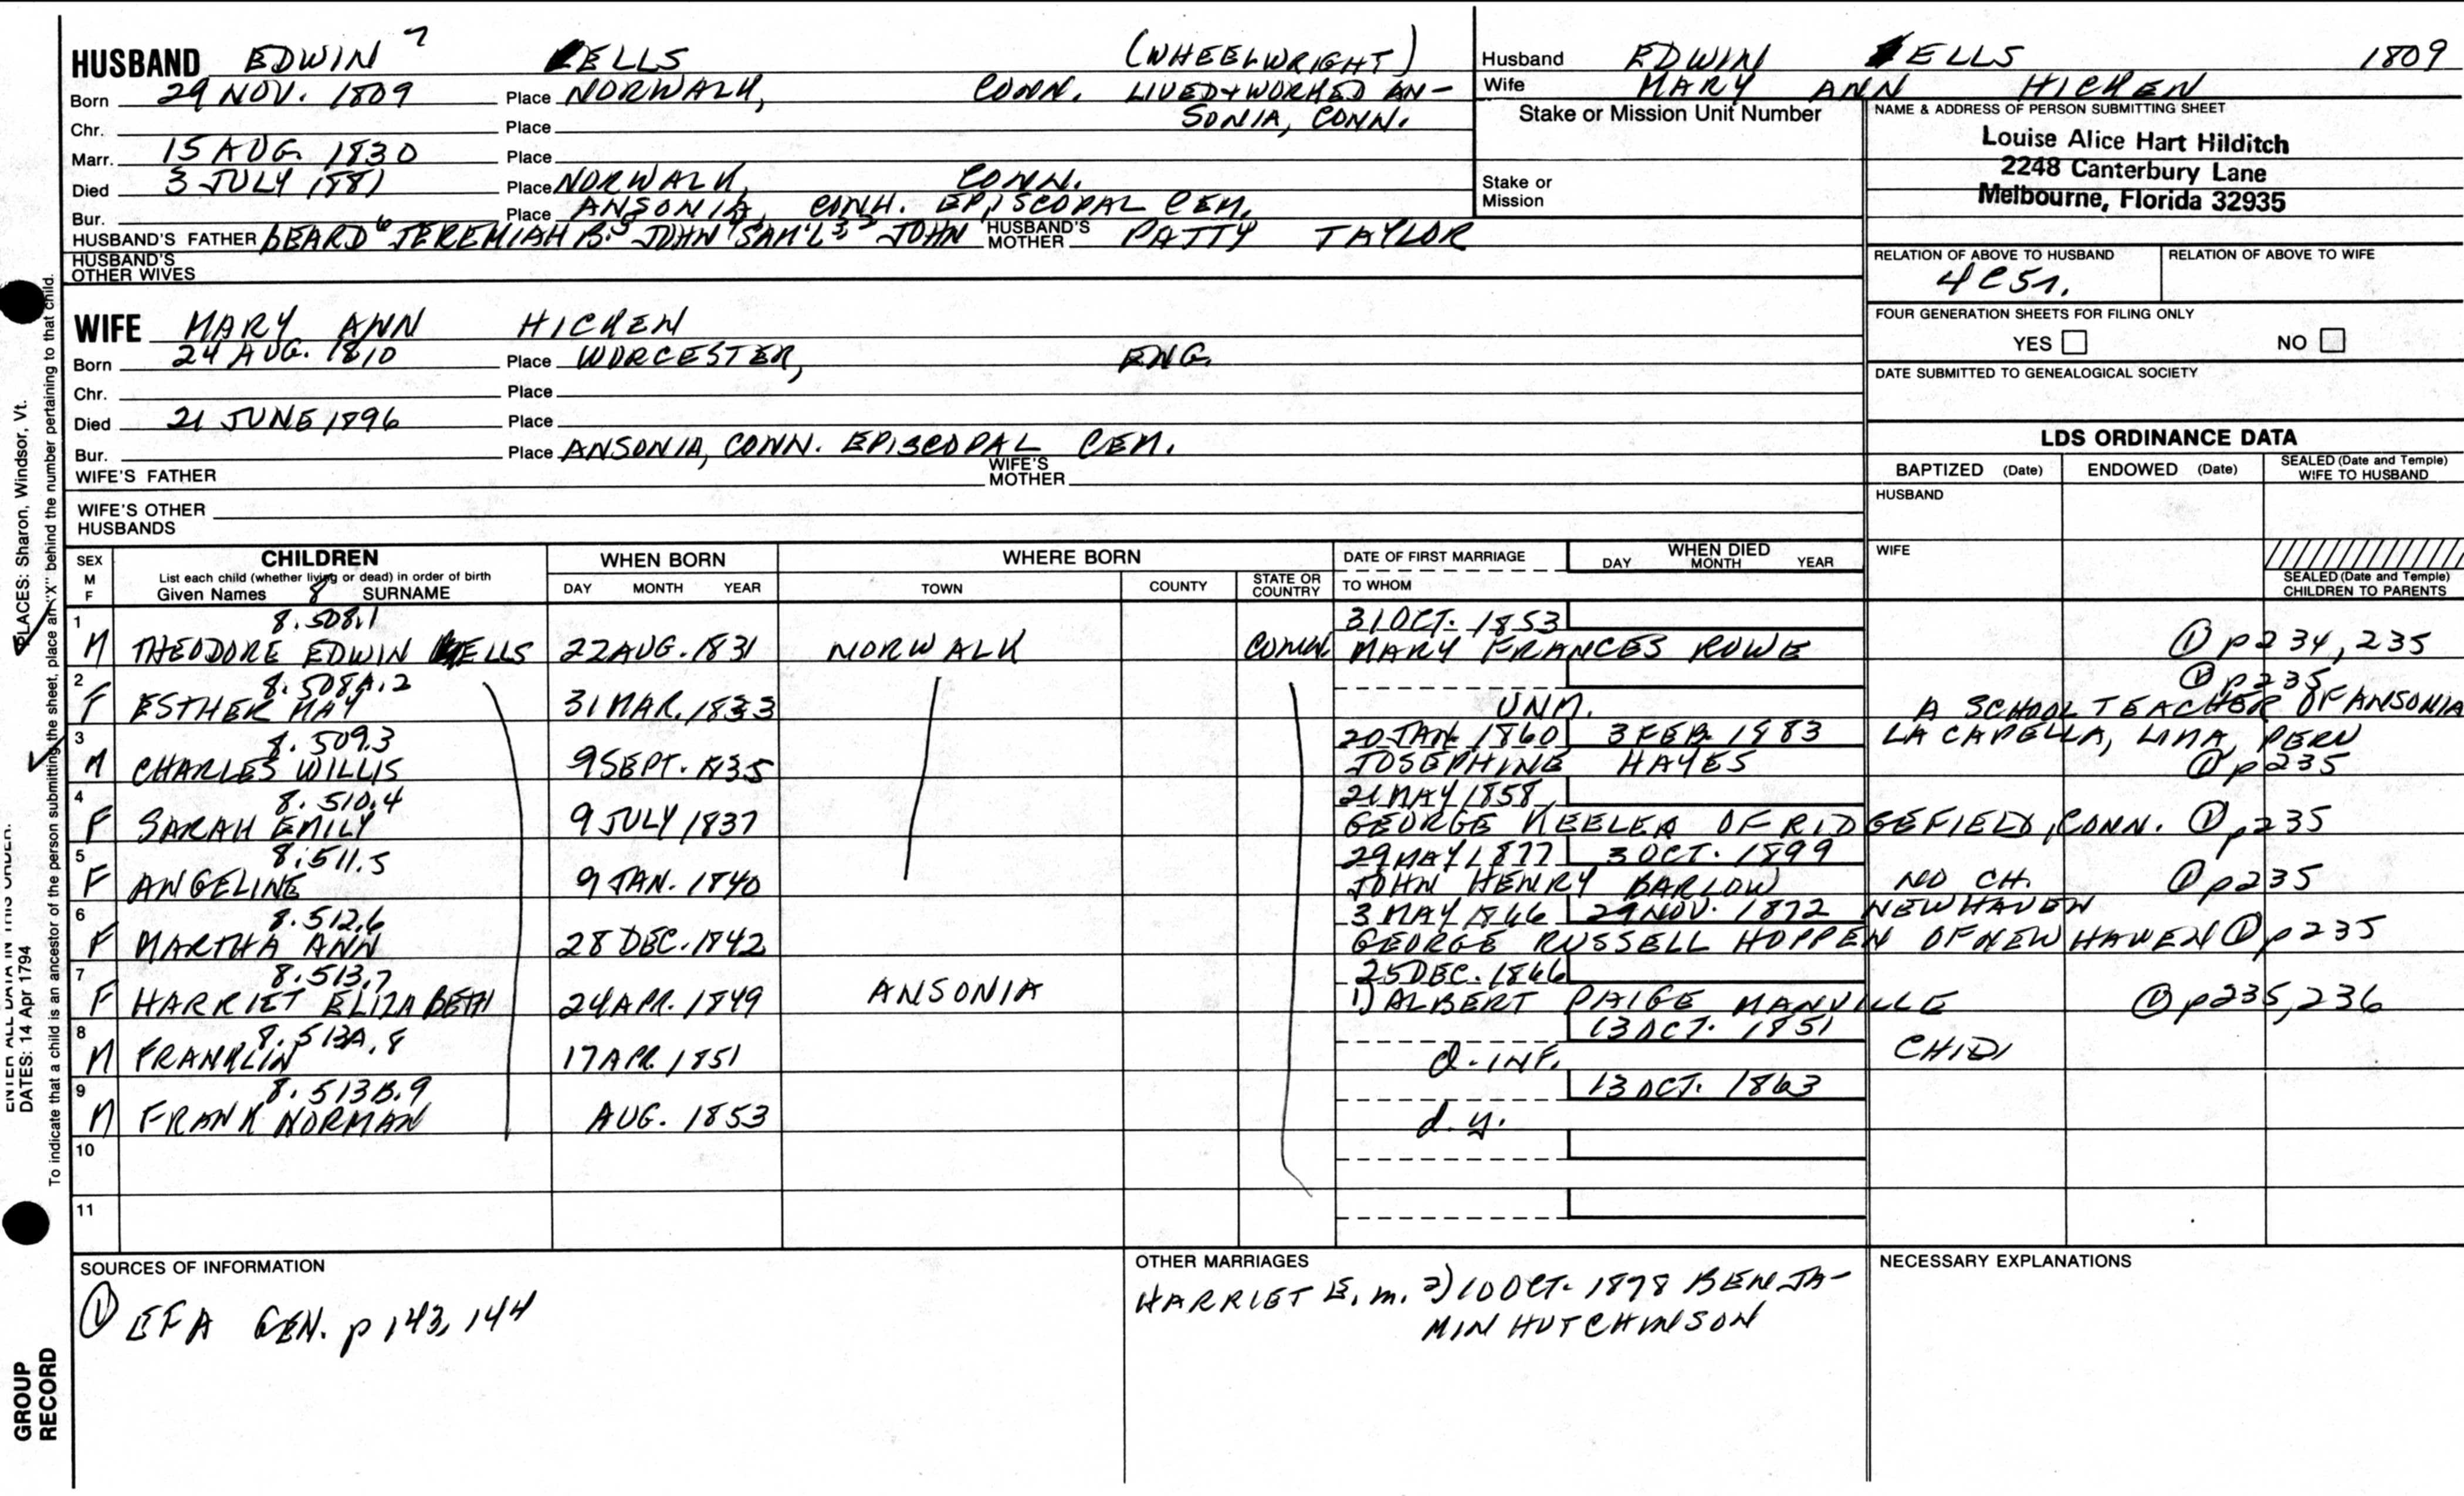 HUSBAND EDWIN 7 ELLS (WHEELWRIGHT)
Born 29 NOV. 1809 Place NORWALK, CONN. LIVED & WORKED AN-
Chr. Place SONIA, CONN.
Marr. 15 AUG. 1830 Place
Died 3 JULY 1881 Place NORWALK, CONN.
Bur. Place ANSONIA, CONN. EPISCOPAL CEM.
HUSBAND'S FATHER BEARD 6 JEREMIAH B. 5 JOHN 4 SAM'L 3 2 JOHN 1 HUSBAND'S MOTHER PATTY TAYLOR
HUSBAND'S OTHER WIVES
WIFE MARY ANN HICKEN
Born 24 AUG. 1810 Place WORCESTER, ENG.
Chr. Place
Died 21 JUNE 1896 Place
Bur. Place ANSONIA, CONN. EPISCOPAL CEM.
WIFE'S FATHER WIFE'S MOTHER
WIFE'S OTHER HUSBANDS
Husband EDWIN ELLS 1809
Wife MARY ANN HICKEN
Stake or Mission Unit Number
Stake or Mission
NAME & ADDRESS OF PERSON SUBMITTING SHEET
Louise Alice Hart Hilditch
2248 Canterbury Lane
Melbourne, Florida 32935
RELATION OF ABOVE TO HUSBAND RELATION OF ABOVE TO WIFE
4C5r.
FOUR GENERATION SHEETS FOR FILING ONLY
YES NO
DATE SUBMITTED TO GENEALOGICAL SOCIETY
LDS ORDINANCE DATA
BAPTIZED (Date) ENDOWED (Date) SEALED (Date and Temple) WIFE TO HUSBAND
HUSBAND
WIFE
SEALED (Date and Temple) CHILDREN TO PARENTS
SEX M F CHILDREN WHEN BORN WHERE BORN DATE OF FIRST MARRIAGE WHEN DIED
List each child (whether living or dead) in order of birth
Given Names 8 SURNAME DAY MONTH YEAR TOWN COUNTY STATE OR COUNTRY TO WHOM DAY MONTH YEAR
1 8.508.1 31 OCT. 1853
M THEODORE EDWIN ELLS 22 AUG. 1831 NORWALK CONN. MARY FRANCES ROWE ① p 234, 235
2 8.508A.2 ① p 235
F ESTHER MAY 31 MAR. 1833 UNM. A SCHOOL TEACHER OF ANSONIA
3 8.509.3 20 JAN. 1860 3 FEB. 1883 LA CAPELLA, LIMA, PERU
M CHARLES WILLIS 9 SEPT. 1835 JOSEPHINE HAYES ① p 235
4 8.510.4 21 MAY 1858
F SARAH EMILY 9 JULY 1837 GEORGE KEELER OF RIDGEFIELD, CONN. ① p 235
5 8.511.5 29 MAY 1877 3 OCT. 1899
F ANGELINE 9 JAN. 1840 JOHN HENRY BARLOW NO CH. ① p 235
6 8.512.6 3 MAY 1866 29 NOV. 1872 NEW HAVEN
F MARTHA ANN 28 DEC. 1842 GEORGE RUSSELL HOPPEN OF NEW HAVEN ① p 235
7 8.513.7 25 DEC. 1866
F HARRIET ELIZABETH 24 APR. 1849 ANSONIA 1) ALBERT PAIGE MANVILLE ① p 235, 236
8 8.513A.8 13 OCT. 1851
M FRANKLIN 17 APR. 1851 d. INF.
9 8.513B.9 13 OCT. 1863
M FRANK NORMAN AUG. 1853 d.y.
10
11
SOURCES OF INFORMATION
① EFA GEN. p 143, 144
OTHER MARRIAGES
HARRIET E. m. 2) 10 OCT. 1878 BENJA-
MIN HUTCHINSON
NECESSARY EXPLANATIONS
PLACES: Sharon, Windsor, Vt.
DATES: 14 Apr 1794
To indicate that a child is an ancestor of the person submitting the sheet, place an "X" behind the number pertaining to that child.
GROUP
RECORD